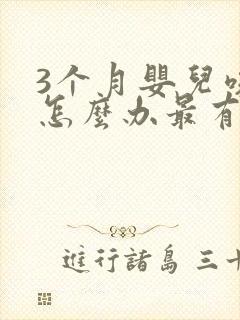 3个月嬰兒
怎麼办最有
進行諸島 三十